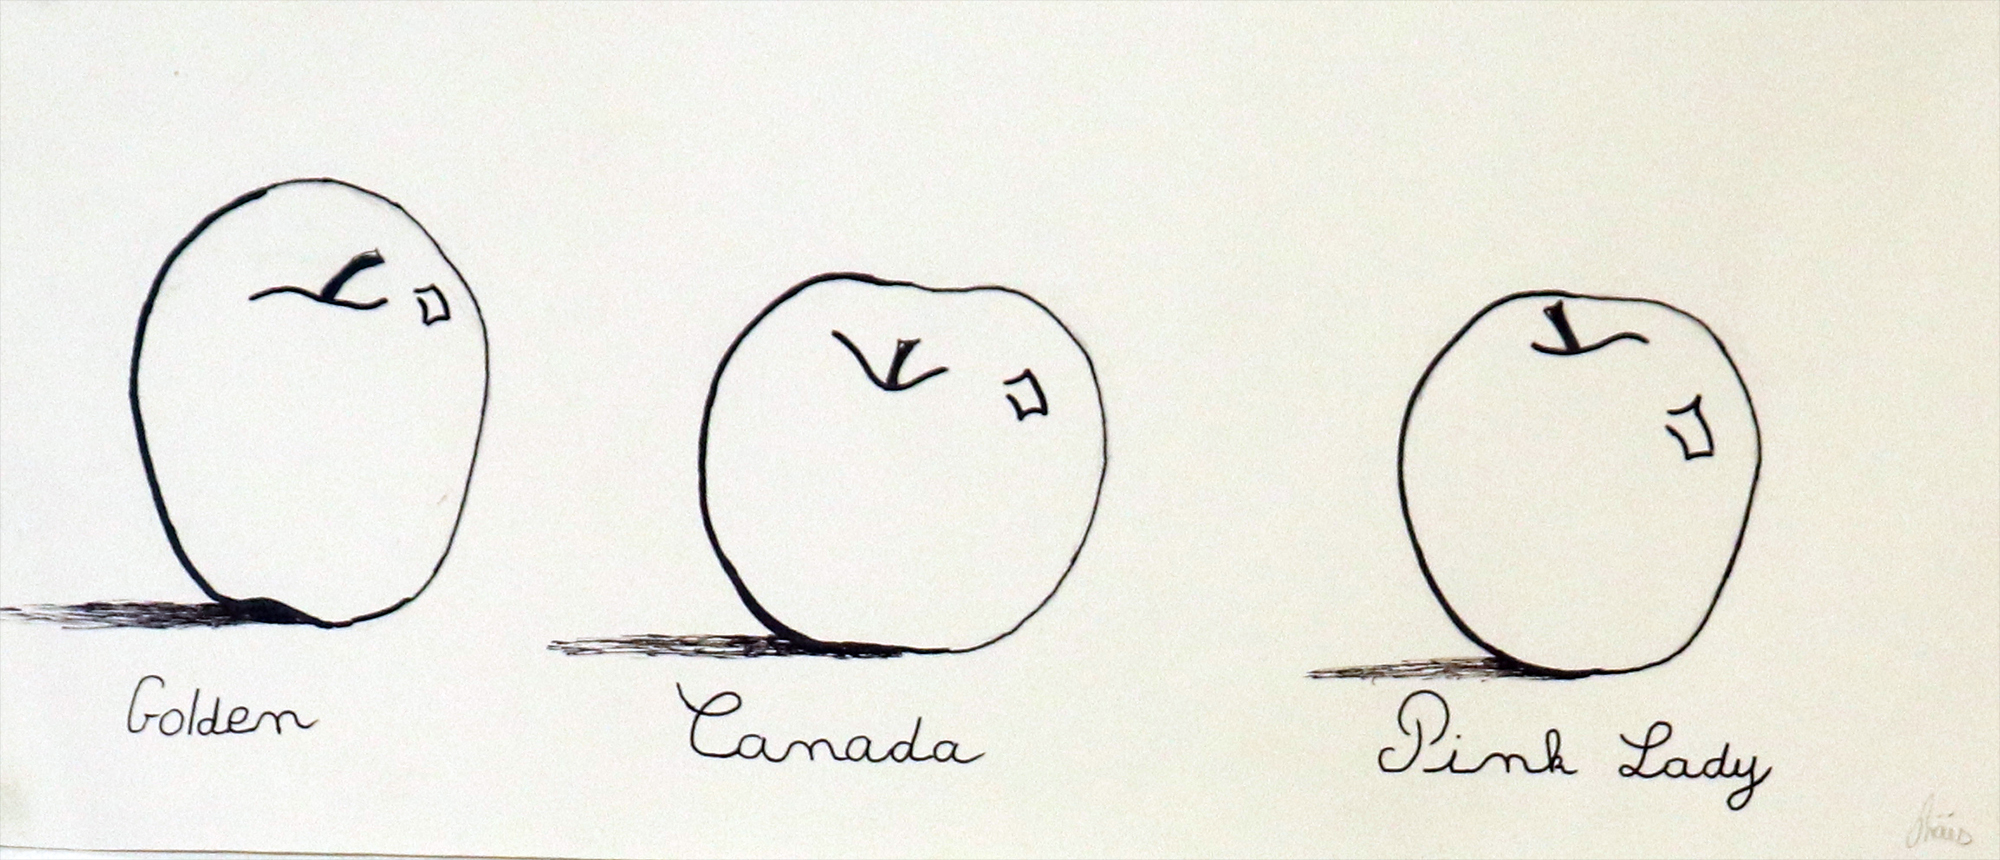 Golden
Canada
Pink Lady